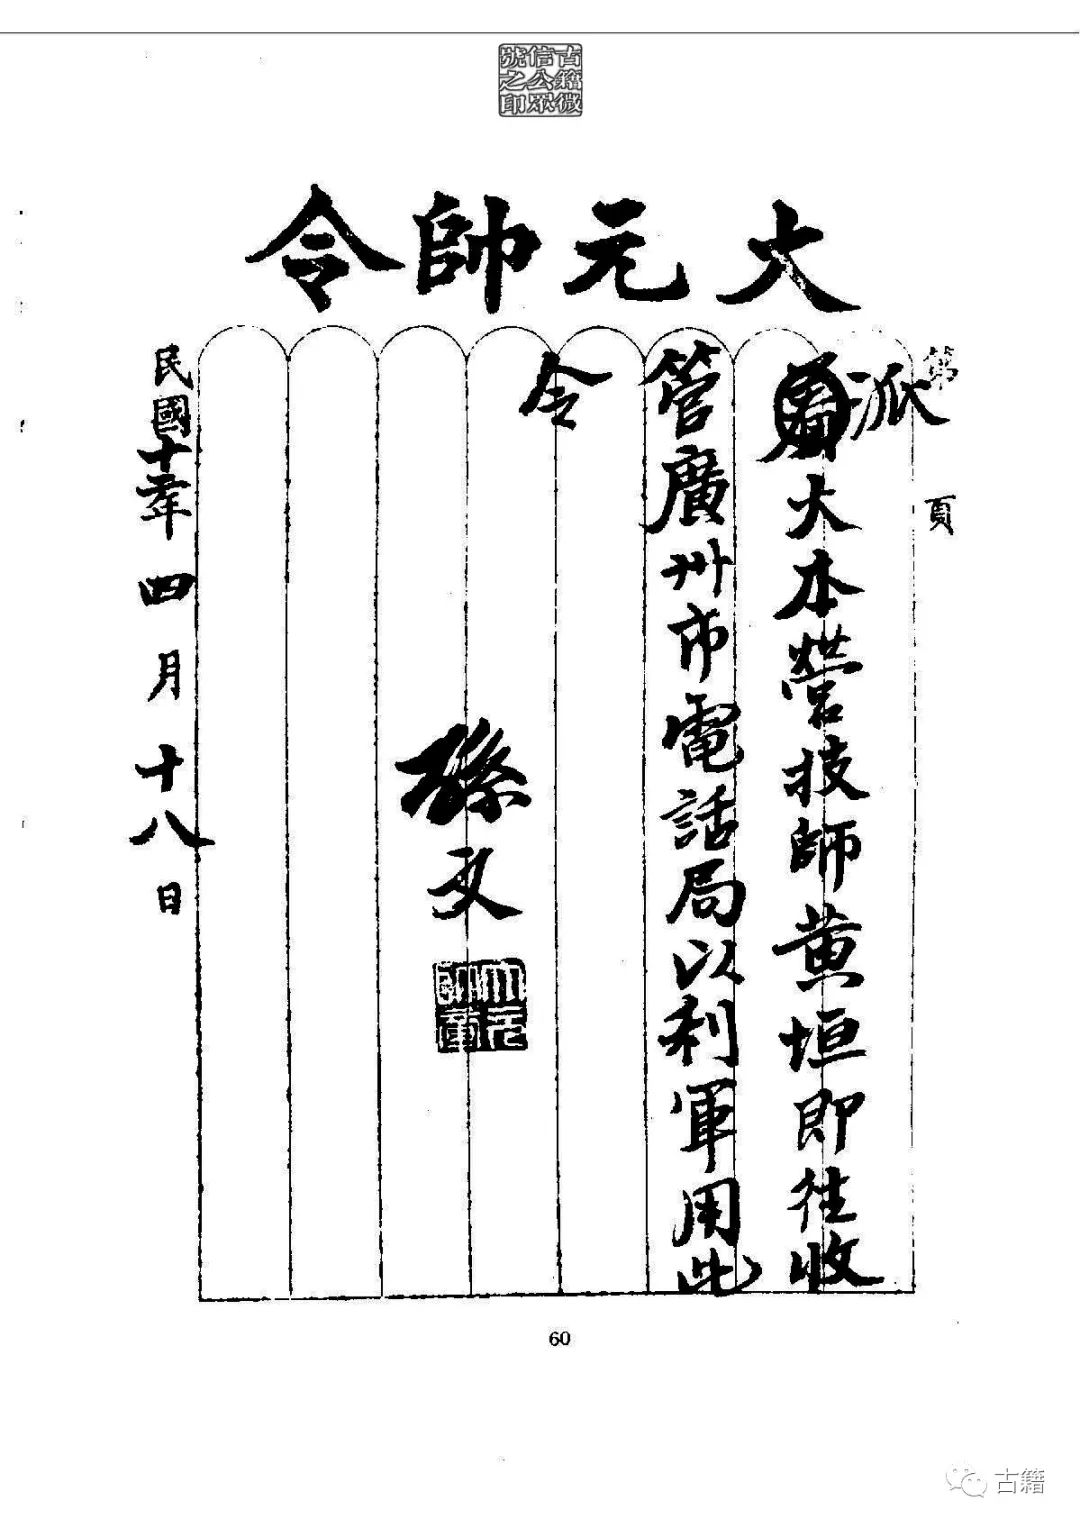 古籍微
信公眾
號之印
大元帥令
第 頁
派
大本營技師黃垣即往收
管廣州市電話局以利軍用此
令
孫文
大元
帥章
民國十二年四月十八日
60
古籍